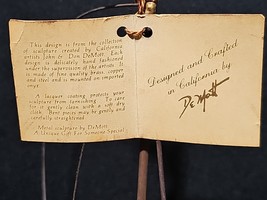 This design is from the collection
of sculpture created by California
artists John & Don DeMott. Each
design is delicately hand fashioned
under the supervision of the artists. It
is made of fine quality brass, copper
and steel and is mounted on imported
onyx.
A lacquer coating protects your
sculpture from tarnishing. To care
for it gently clean with a soft dry
cloth. Bent pieces may be gently and
carefully straightened.
Metal sculpture by DeMott.
A Unique Gift For Someone Special
Designed and Crafted
in California by
DeMott